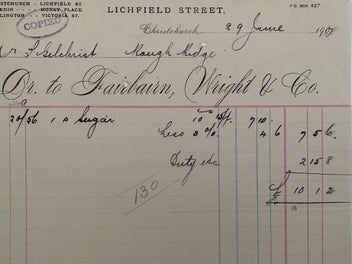 STCHURCH - LICHFIELD ST.
EDIN - MORAY PLACE.
LINGTON - VICTORIA ST.
LICHFIELD STREET,
P.O. BOX 427.
COPIED
Christchurch, 29 June 190
Mr F Gilchrist Maugh Ridge
Dr. to Fairbairn, Wright & Co.
20/56 1 A Sugar 10 15/- 7 10
Less 3% 4 6 7 5 6
Duty etc 2 15 8
10 1 2
130